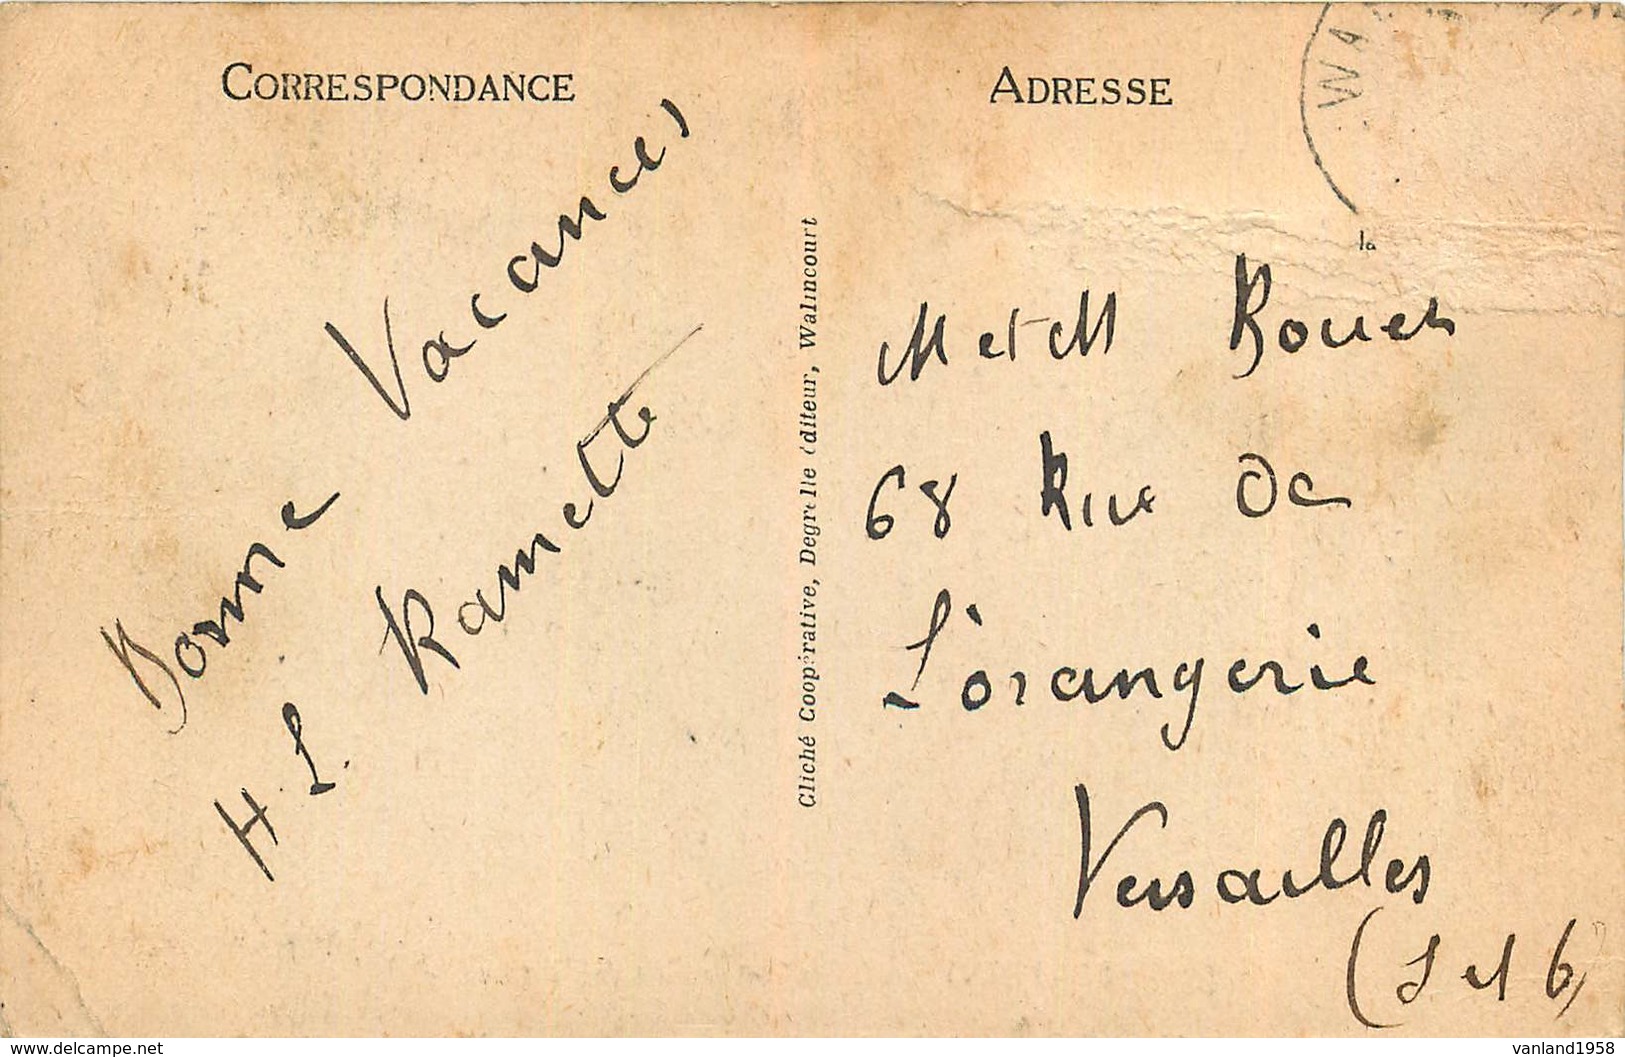 CORRESPONDANCE
Bonne Vacances,
H. L. Ramette
Cliché Coopérative, Degrelle éditeur, Walincourt
ADRESSE
WA
M et M
68 Rue de
L'orangerie
Versailles
(S et O)
www.delcampe.net
vanland1958